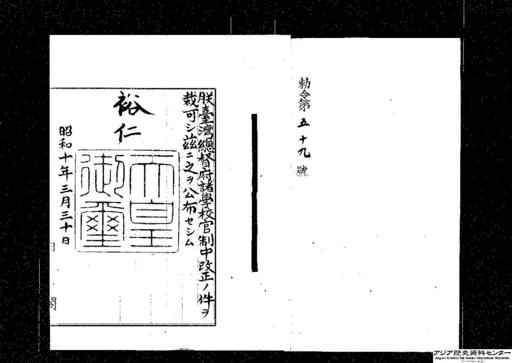 勅令第五十九號
朕臺灣總督府諸學校官制中改正ノ件ヲ
裁可シ茲ニ之ヲ公布セシム
裕仁
天皇
御璽
昭和十年三月三十日
アジア歴史資料センター
Japan Center for Asian Historical Records